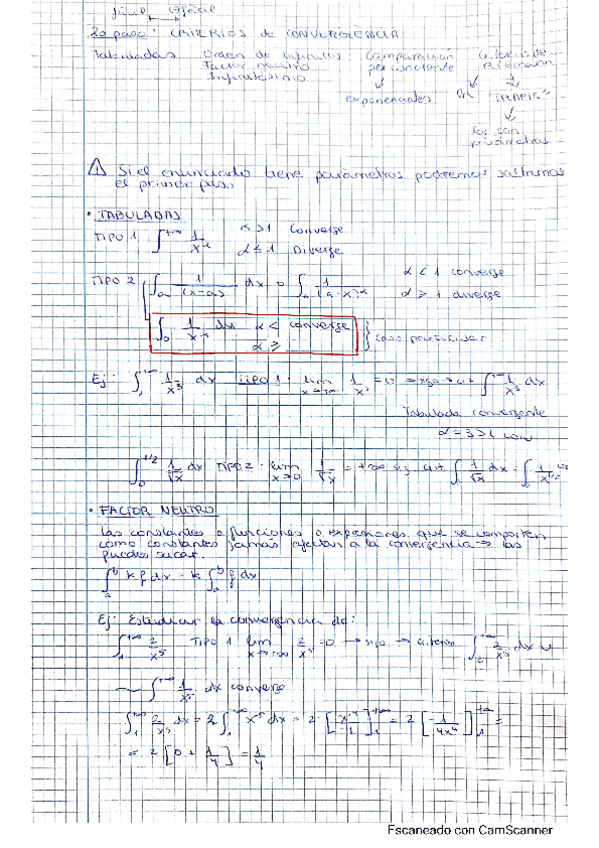 fácil difícil
2º paso: CRITERIOS de CONVERGENCIA
Tabuladas Orden de infinitos Comparación criterio de
Factor neutro por cociente
Infinitésimo
exponenciales
los con
parámetros
⚠ Si el enunciado tiene parámetros podremos saltarnos
el primer paso
• TABULADAS
TIPO 1 ∫^{+∞} 1/x^α α > 1 Converge
α ≤ 1 Diverge
TIPO 2 ∫_a 1/(x-a)^α dx o ∫_a 1/(a-x)^α α < 1 converge
α ≥ 1 diverge
∫_0 1/x^α dx α < converge } caso particular
α ≥
Ej: ∫_1^{+∞} 1/x³ dx TIPO 1 · lim_{x→+∞} 1/x³ = 0 → sigo → ∫^{+∞} 1/x³ dx
Tabulada convergente
α = 3 > 1 conv
∫_0^{1/2} 1/√x dx TIPO 2 · lim_{x→0} 1/√x = +∞ sig crit ∫_0 1/√x dx = ∫ 1/x^{1/2}
• FACTOR NEUTRO
Las constantes o funciones o expresiones que se comporten
como constantes jamás afectan a la convergencia → las
puedes sacar.
∫_a^b k f dx = k ∫_a^b f dx
Ej: Estudiar la convergencia de:
∫_1^{+∞} 2/x⁵ TIPO 1 lim_{x→+∞} 2/x⁵ = 0 → sigo → criterio ∫^{+∞} 2/x⁵ dx ~
~ ∫^{+∞} 1/x⁵ dx converge
∫_1^{+∞} 2/x⁵ dx = 2 ∫_1^{+∞} x^{-5} dx = 2 · [ ]_1^{+∞} = 2 [-1/4x⁴]_1^{+∞} =
= 2 [0 + 1/4] = 1/4
Escaneado con CamScanner